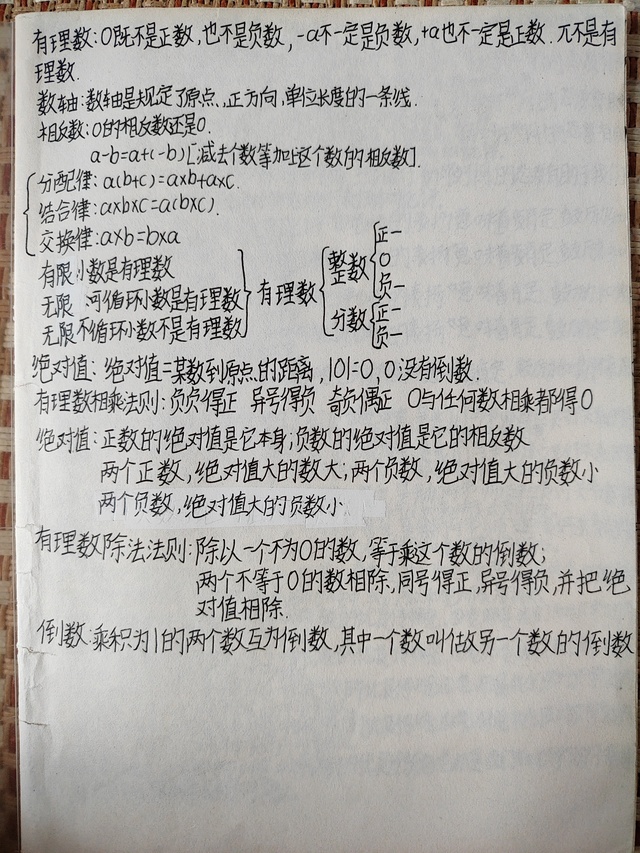 有理数:0既不是正数,也不是负数,-a不一定是负数,+a也不一定是正数.π不是有
理数.
数轴:数轴是规定了原点,正方向,单位长度的一条线.
相反数:0的相反数还是0.
a-b=a+(-b)[减去个数等加上这个数的相反数].
分配律:a(b+c)=a×b+a×c.
结合律:a×b×c=a(b×c).
交换律:a×b=b×a
有限小数是有理数
无限 可循环小数是有理数
无限不循环小数不是有理数
有理数
整数
正一
0
负一
分数
正一
负一
绝对值:绝对值=某数到原点的距离,|0|=0,0没有倒数.
有理数相乘法则:负负得正 异号得负 奇负偶正 0与任何数相乘都得0
绝对值:正数的绝对值是它本身;负数的绝对值是它的相反数
两个正数,绝对值大的数大;两个负数,绝对值大的负数小
两个负数,绝对值大的负数小
有理数除法法则:除以一个不为0的数,等于乘这个数的倒数;
两个不等于0的数相除,同号得正,异号得负,并把绝
对值相除.
倒数:乘积为1的两个数互为倒数,其中一个数叫做另一个数的倒数